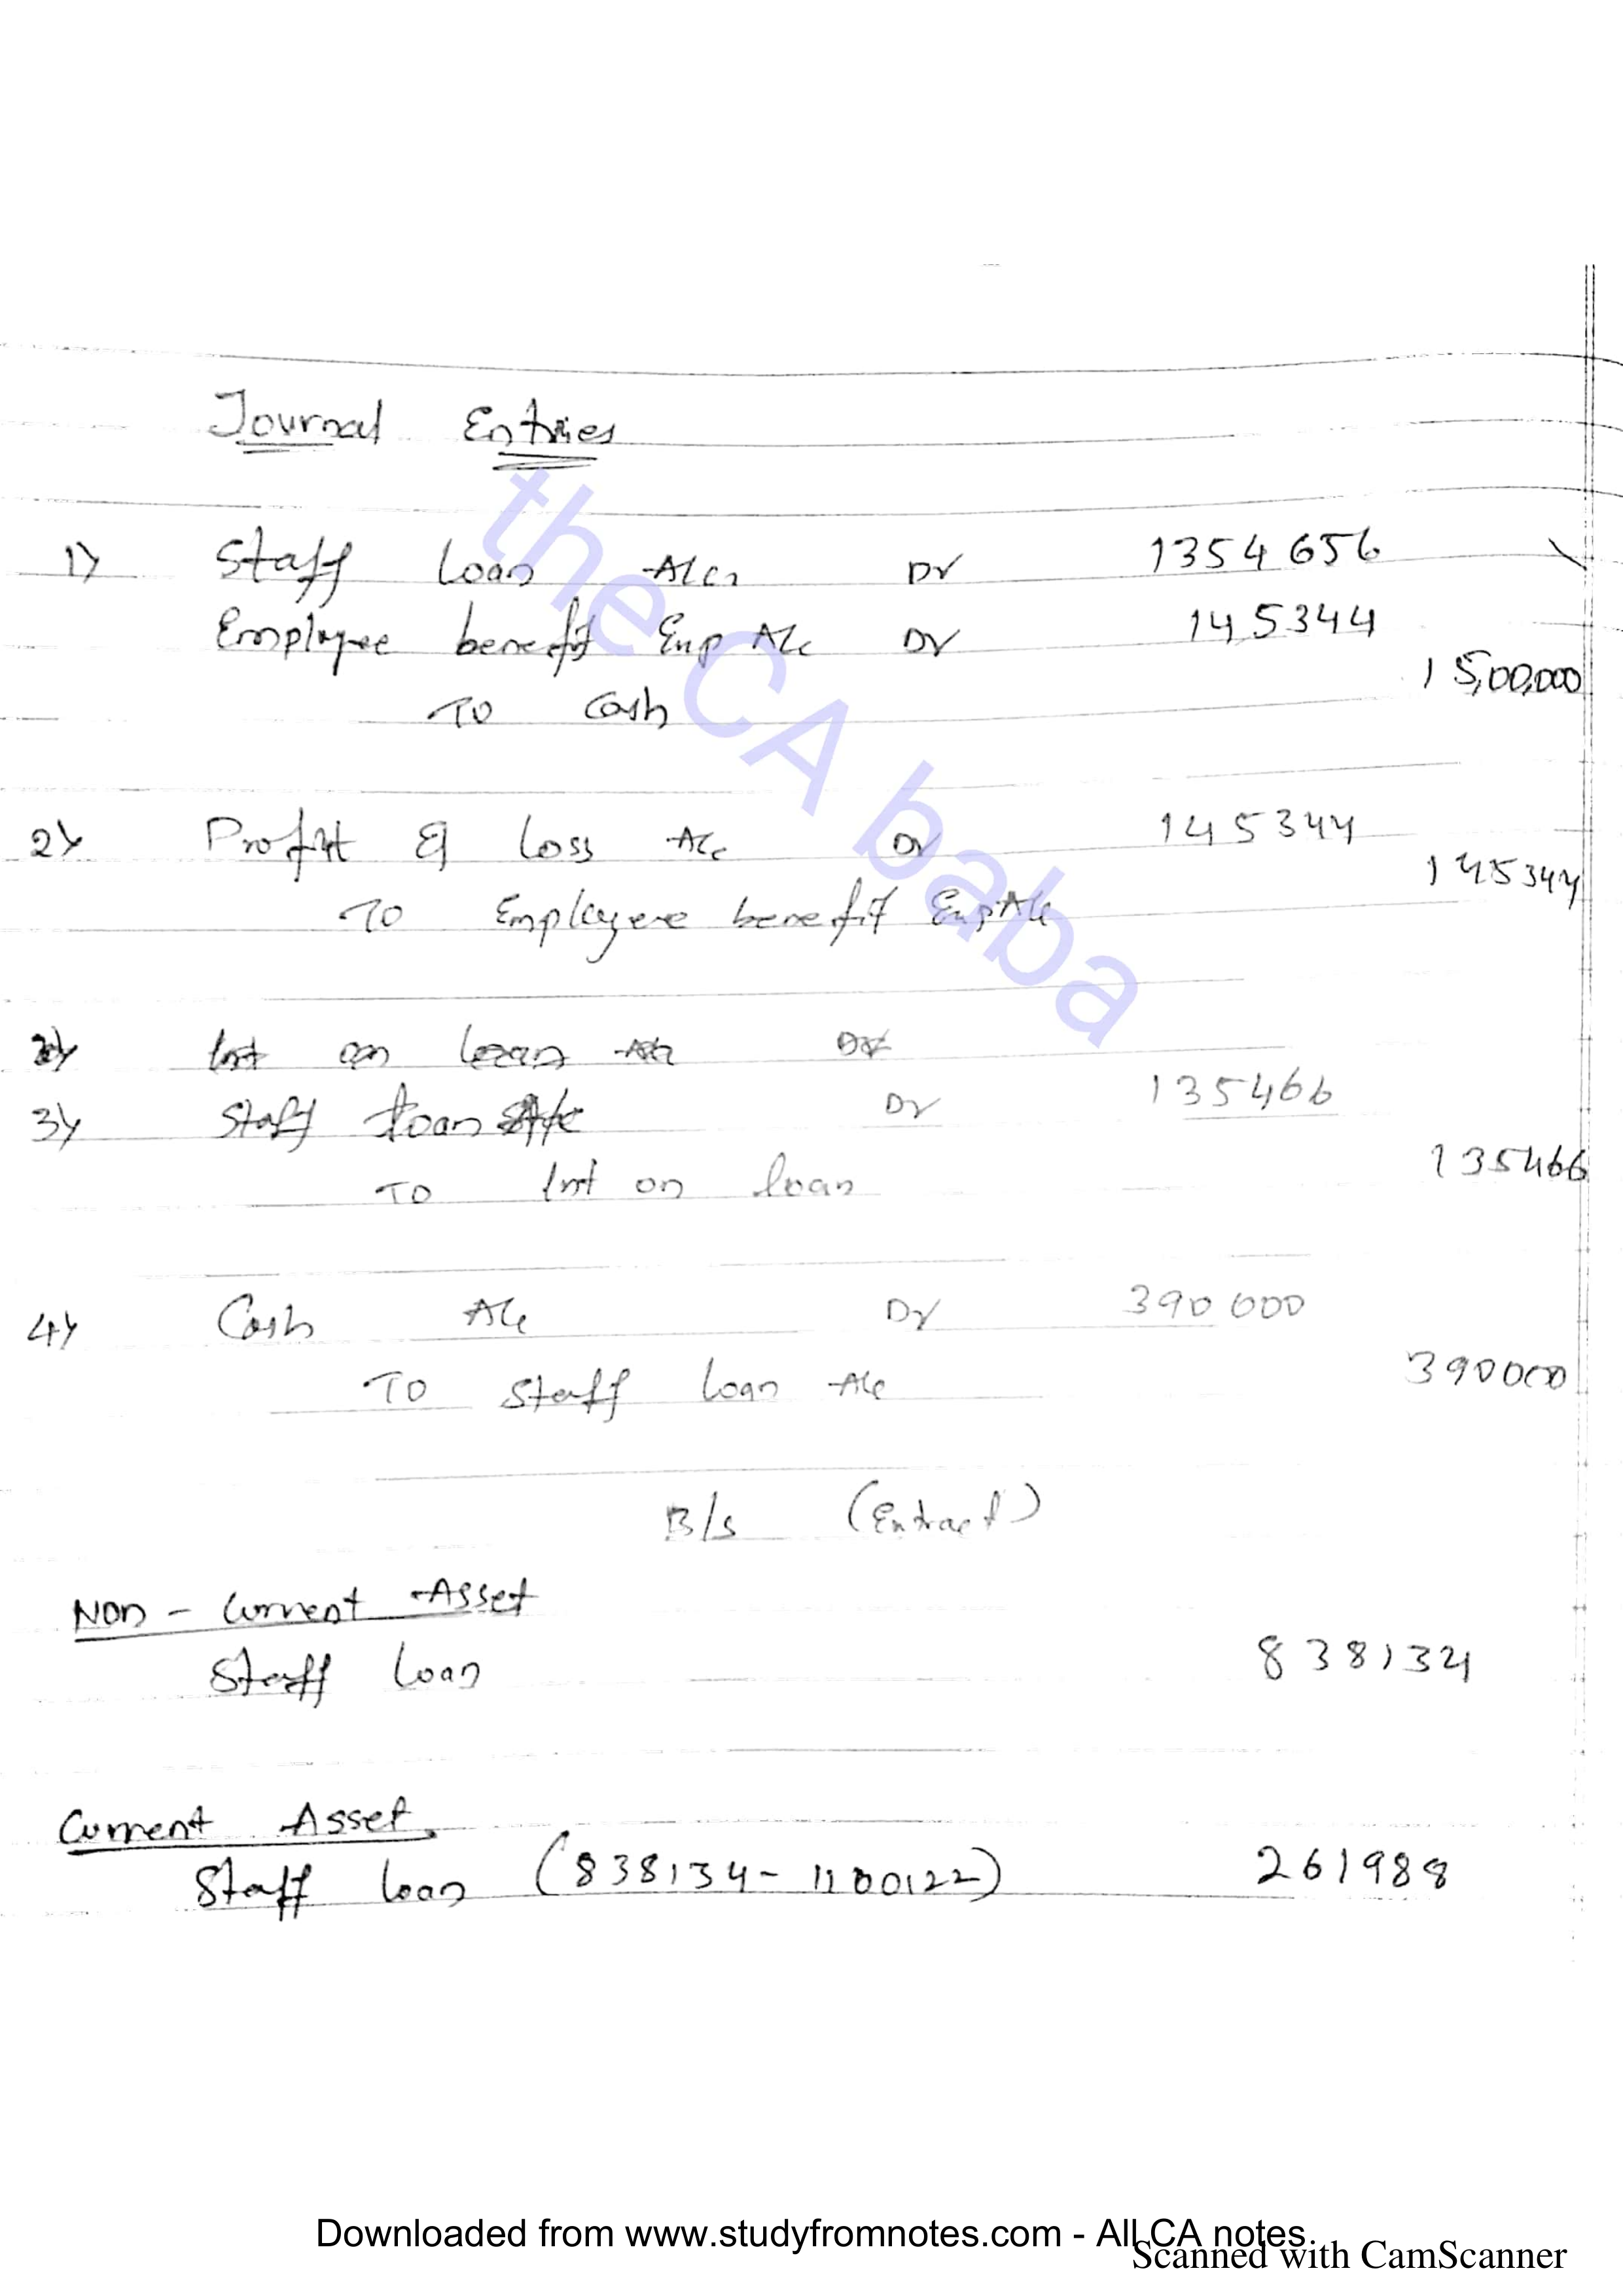 Journal Entries
1) Staff loan A/c Dr 1354656
Employee benefit Exp A/c Dr 145344
To Cash 15,00,000
2) Profit & Loss A/c Dr 145344
To Employee benefit Exp A/c 145344
Int on loan A/c Dr
3) Staff loan A/c Dr 135466
To Int on loan 135466
4) Cash A/c Dr 390000
To Staff loan A/c 390000
B/s (Extract)
Non - Current Asset
Staff loan 838134
Current Asset
Staff loan (838134 - 1100122) 261988
the CA baba
Downloaded from www.studyfromnotes.com - All CA notes
Scanned with CamScanner